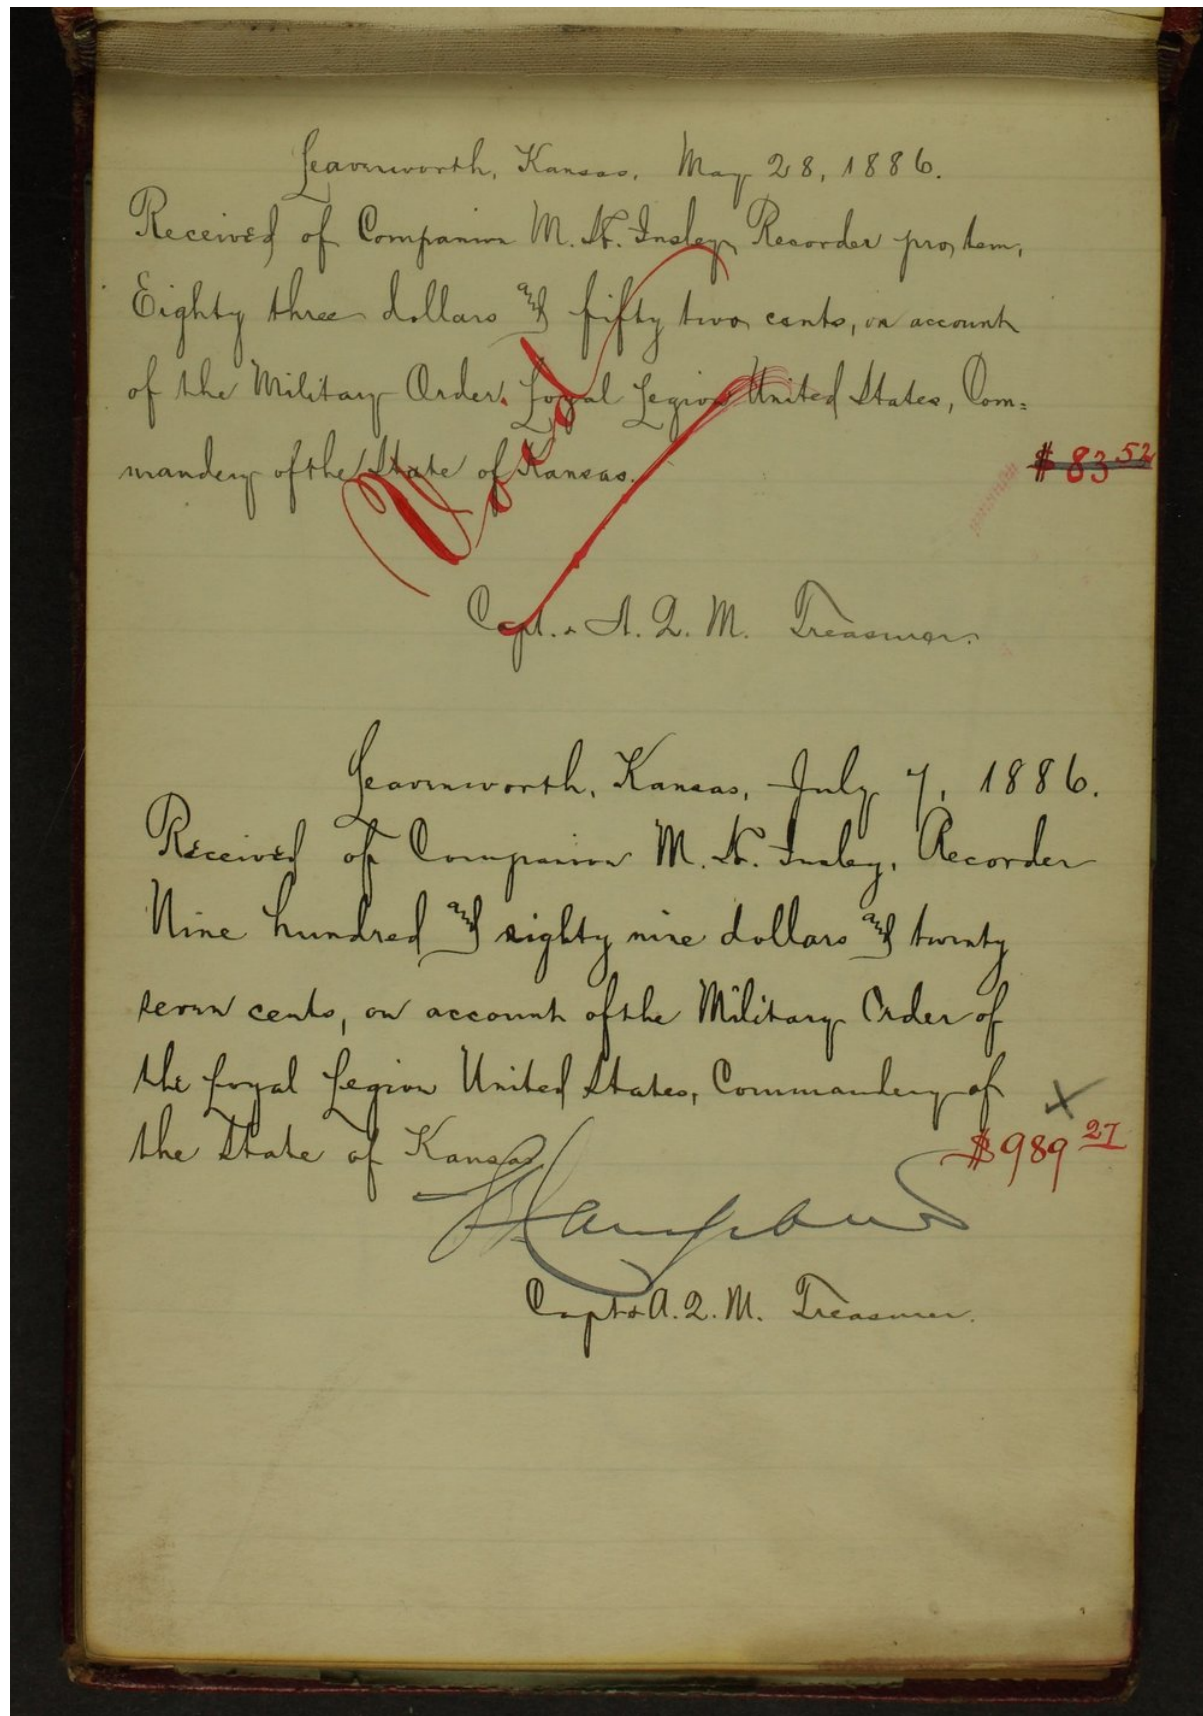 Leavenworth, Kansas, May 28, 1886.
Received of Companion M. H. Insley, Recorder pro tem,
Eighty three dollars and fifty two cents, on account
of the Military Order, Loyal Legion United States, Com=
mandery of the State of Kansas.
$ 83 52
Void
Capt. & A. Q. M. Treasurer.
Leavenworth, Kansas, July 7, 1886.
Received of Companion M. H. Insley, Recorder
Nine hundred and eighty nine dollars and twenty
seven cents, on account of the Military Order of
the Loyal Legion United States, Commandery of
the State of Kansas
X
$989 27
Capt & A. Q. M. Treasurer.